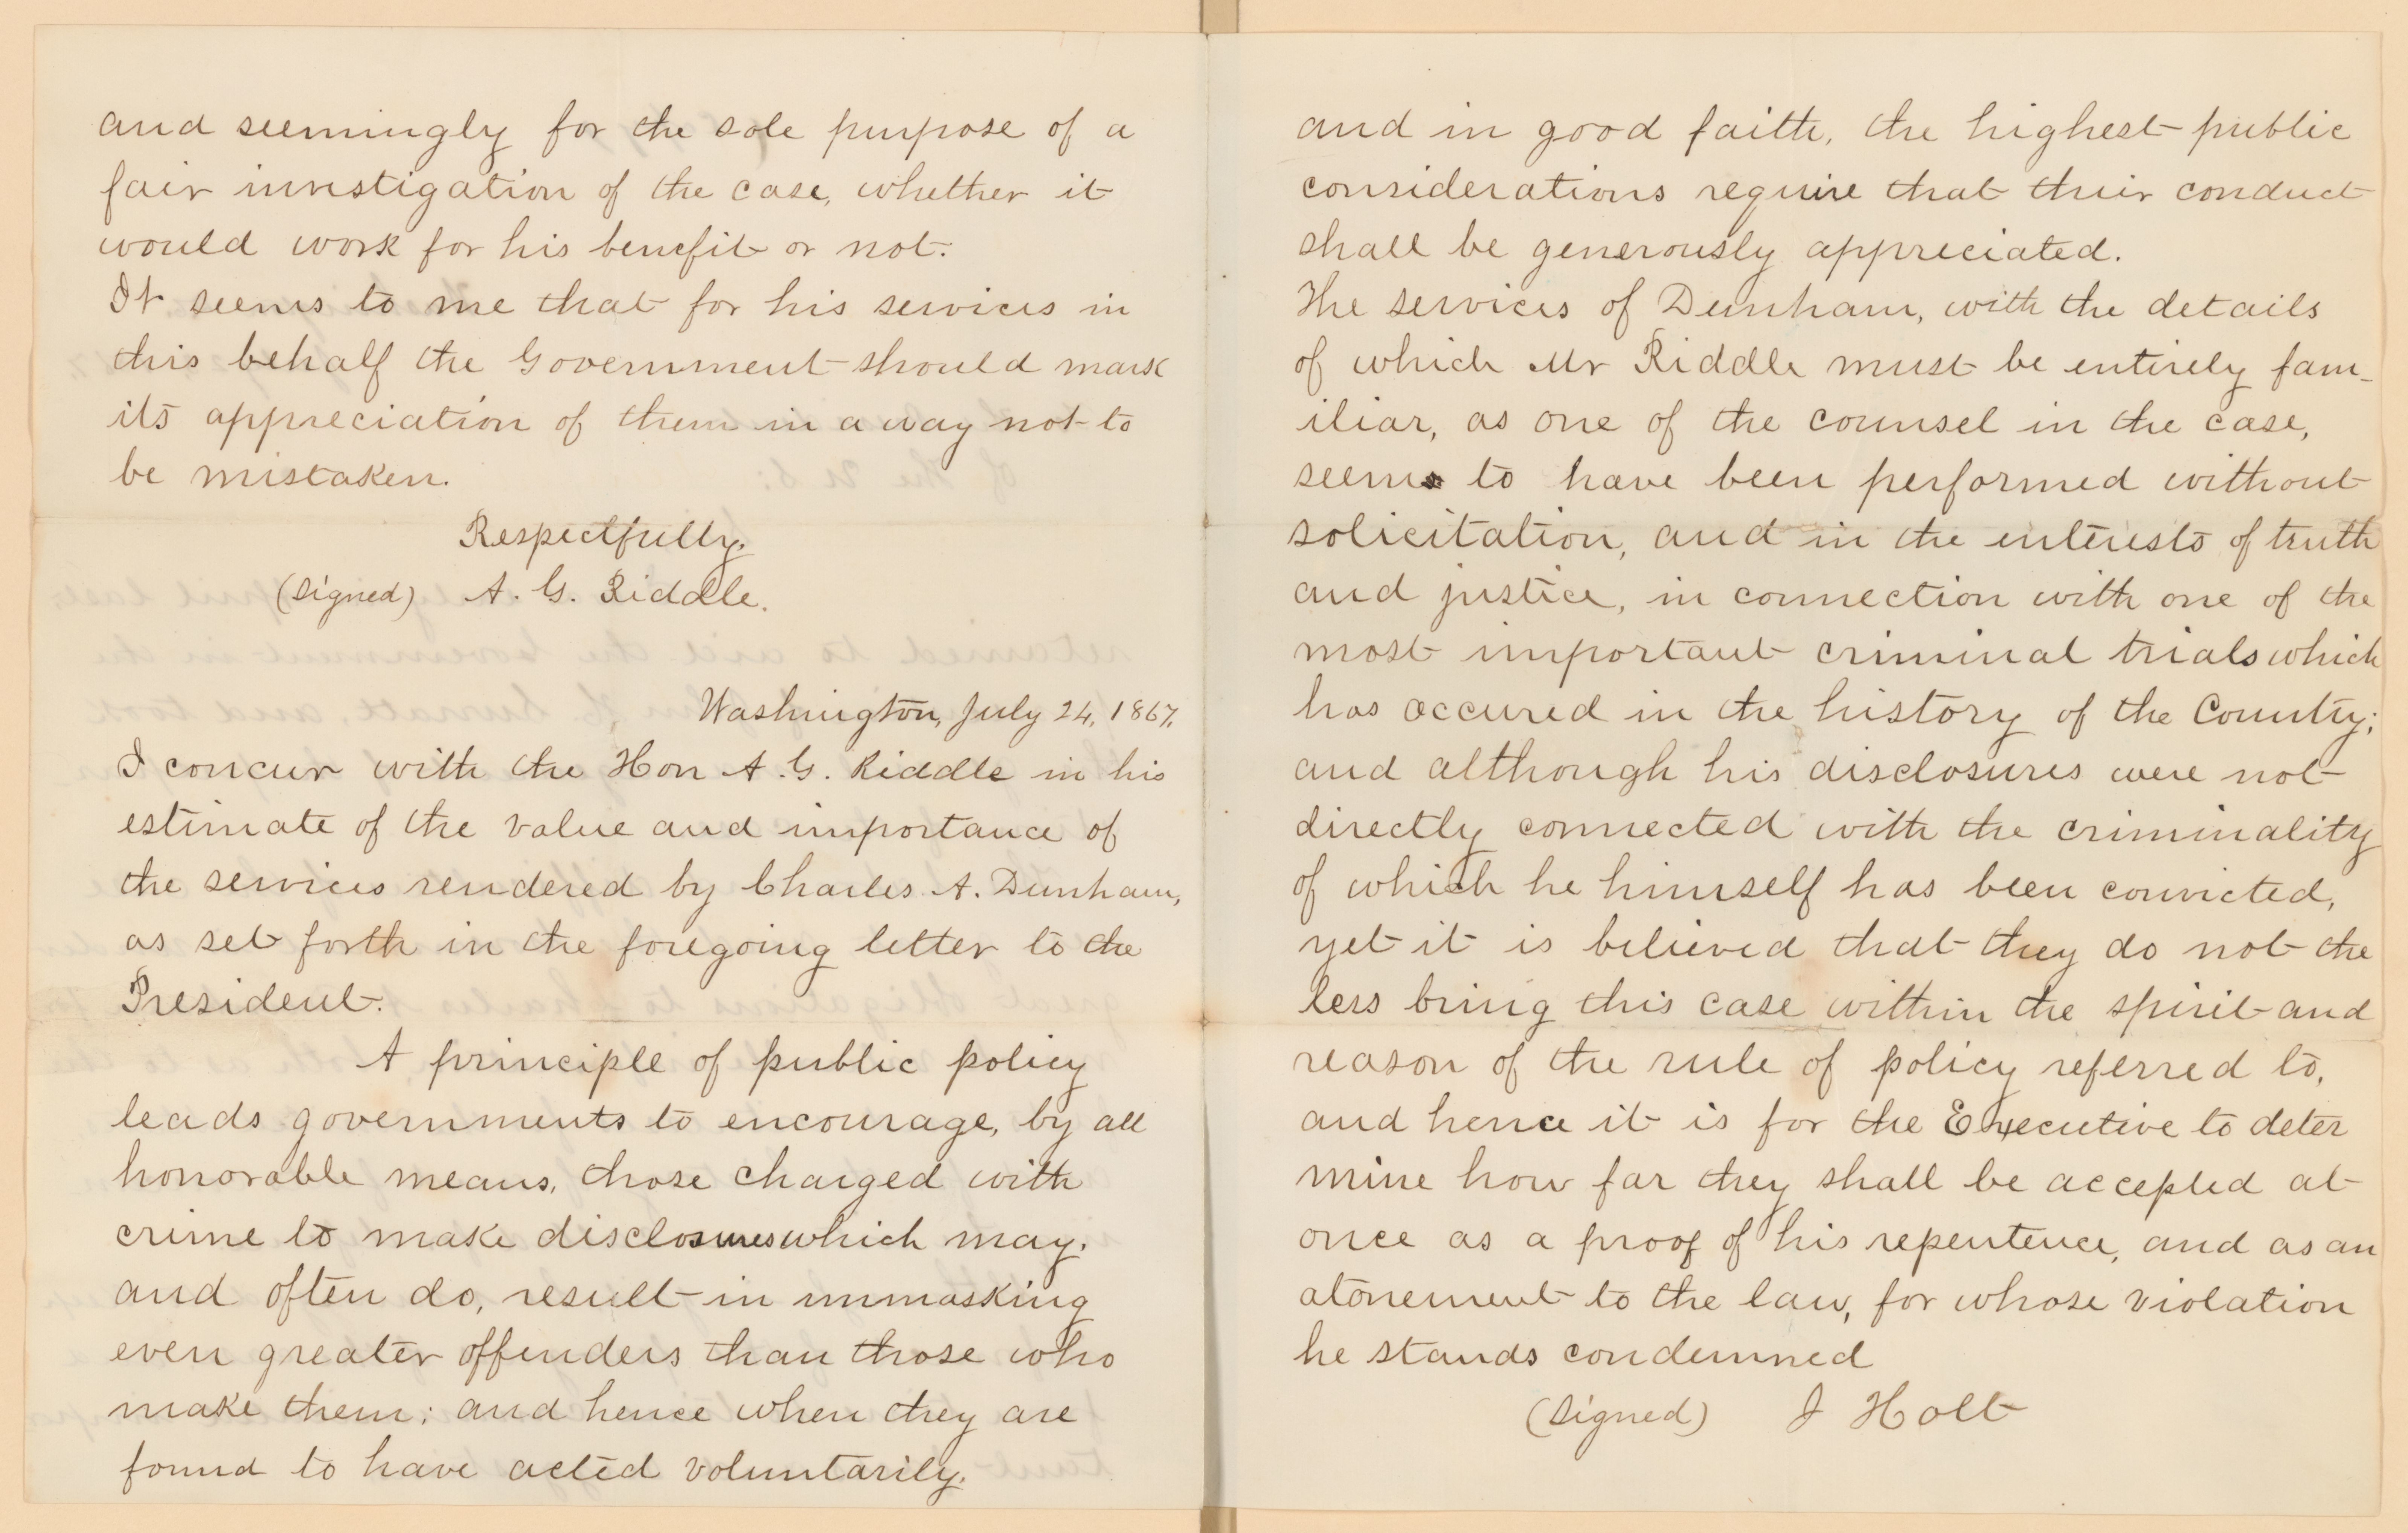 and seemingly for the sole purpose of a
fair investigation of the case, whether it
would work for his benefit or not.
It seems to me that for his services in
this behalf the Government should mark
its appreciation of them in a way not to
be mistaken.
Respectfully.
(signed) A. G. Riddle.
Washington, July 24, 1867.
I concur with the Hon A. G. Riddle in his
estimate of the value and importance of
the services rendered by Charles A. Dunham,
as set forth in the foregoing letter to the
President.
A principle of public policy
leads governments to encourage, by all
honorable means, those charged with
crime to make disclosures which may,
and often do, result in unmasking
even greater offenders than those who
make them; and hence when they are
found to have acted voluntarily.
and in good faith, the highest public
considerations require that their conduct
shall be generously appreciated.
The services of Dunham, with the details
of which Mr Riddle must be entirely fam-
iliar, as one of the counsel in the case,
seems to have been performed without
solicitation, and in the interests of truth
and justice, in connection with one of the
most important criminal trials which
has occured in the history of the Country;
and although his disclosures were not
directly connected with the criminality
of which he himself has been convicted,
yet it is believed that they do not the
less bring this case within the spirit and
reason of the rule of policy referred to,
and hence it is for the Executive to deter
mine how far they shall be accepted at
once as a proof of his repentence, and as an
atonement to the law, for whose violation
he stands condemned
(signed) J Holt